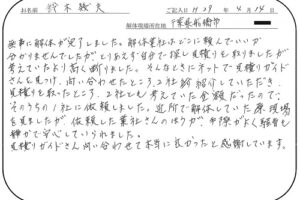 お名前 鈴木 義夫 ご記入日 H29年 4月14日
解体現場所在地 千葉県船橋市
無事に解体が完了しました。解体業社はどこに頼んでいいか
分かりませんでしたがとりあえず自分で探し見積りを取りましたが
考えていたより高く断りました。そんなときにネットで見積りガイド
さんを見つけ、問い合わせたところ2社紹介していただき、
見積りを取ったところ、2社とも考えていた金額だったので
そのうちの1社に依頼しました。近所で解体していた原現場
を見ましたが依頼した業社さんのほうが、手際がよく騒音も
静かで安心していられました。
見積りガイドさん問い合わせて本当に良かったと感謝しています。